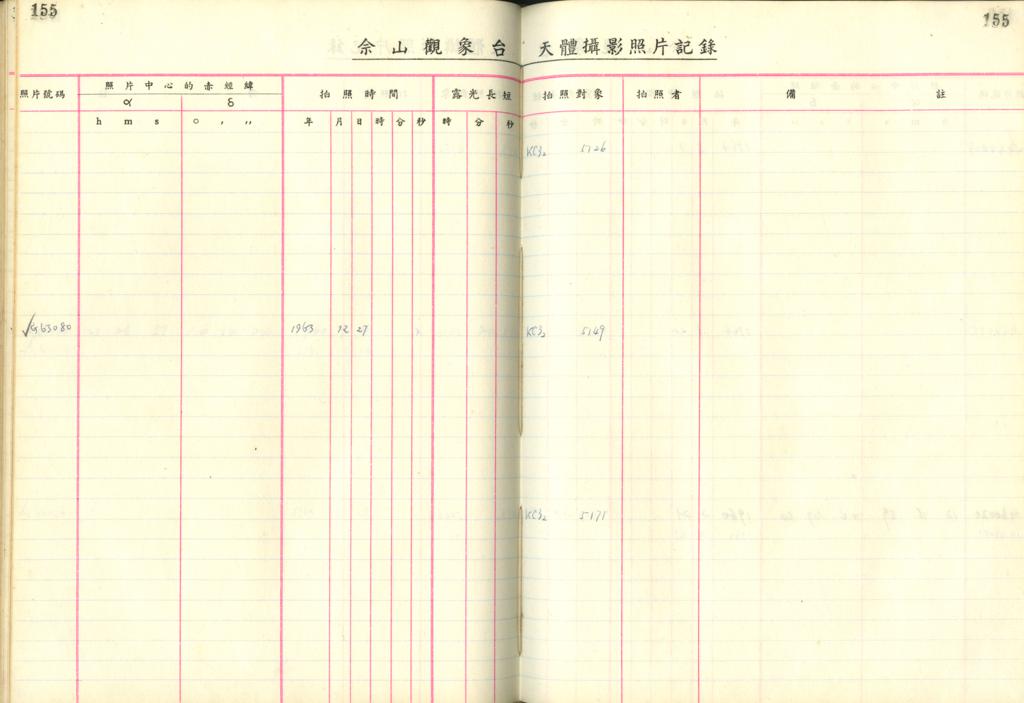 155
155
佘山觀象台 天體攝影照片記錄
照片號碼 照片中心的赤經緯 拍照時間 露光長短 拍照對象 拍照者 備註
α δ
h m s ○ ′ ″ 年 月 日 時 分 秒 時 分 秒
KCЗ₂ 5126
√G63080 1963 12 27 KCЗ₂ 5149
KCЗ₂ 5171